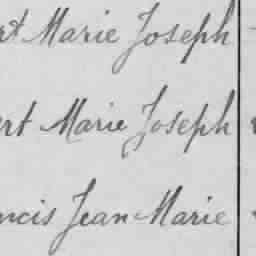 rt Marie Joseph
ert Marie Joseph
ncis Jean Marie